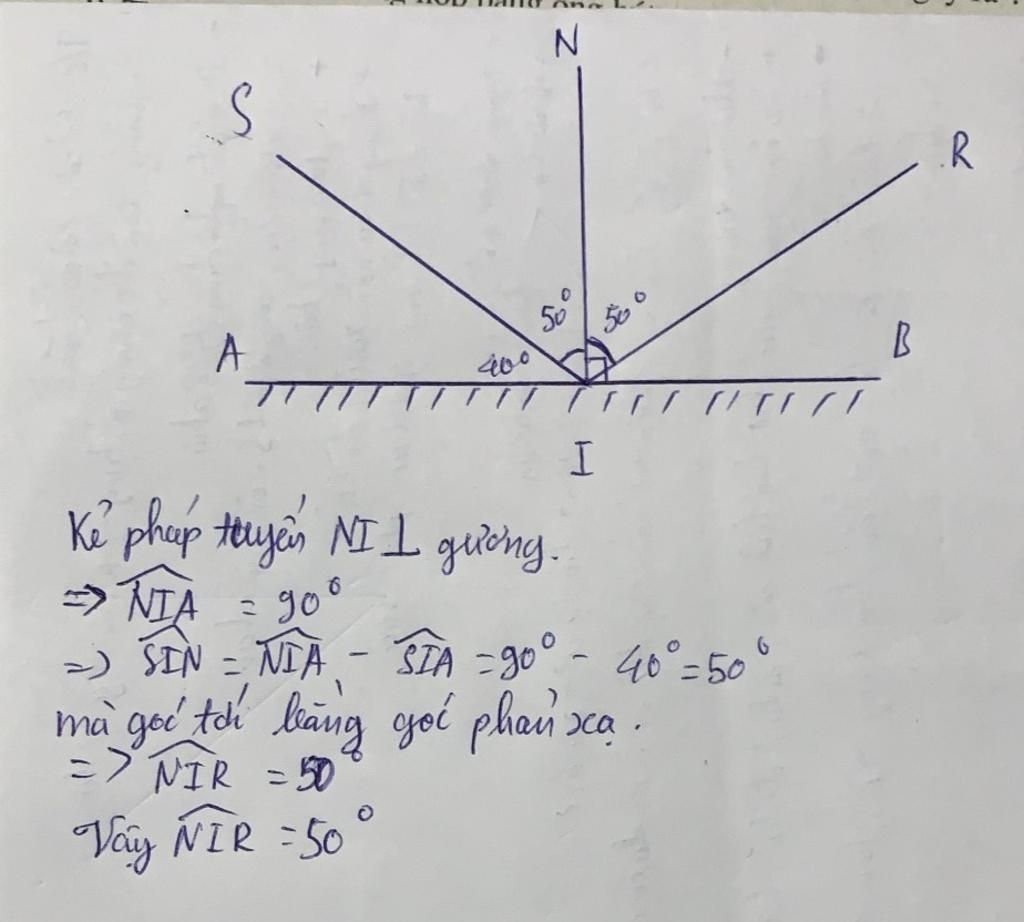 N
S
R
50° 50°
A
40°
B
I
Kẻ pháp tuyến NI ⊥ gương.
=> NIA = 90°
=> SIN = NIA - SIA = 90° - 40° = 50°
mà góc tới bằng góc phản xạ.
=> NIR = 50°
Vậy NIR = 50°